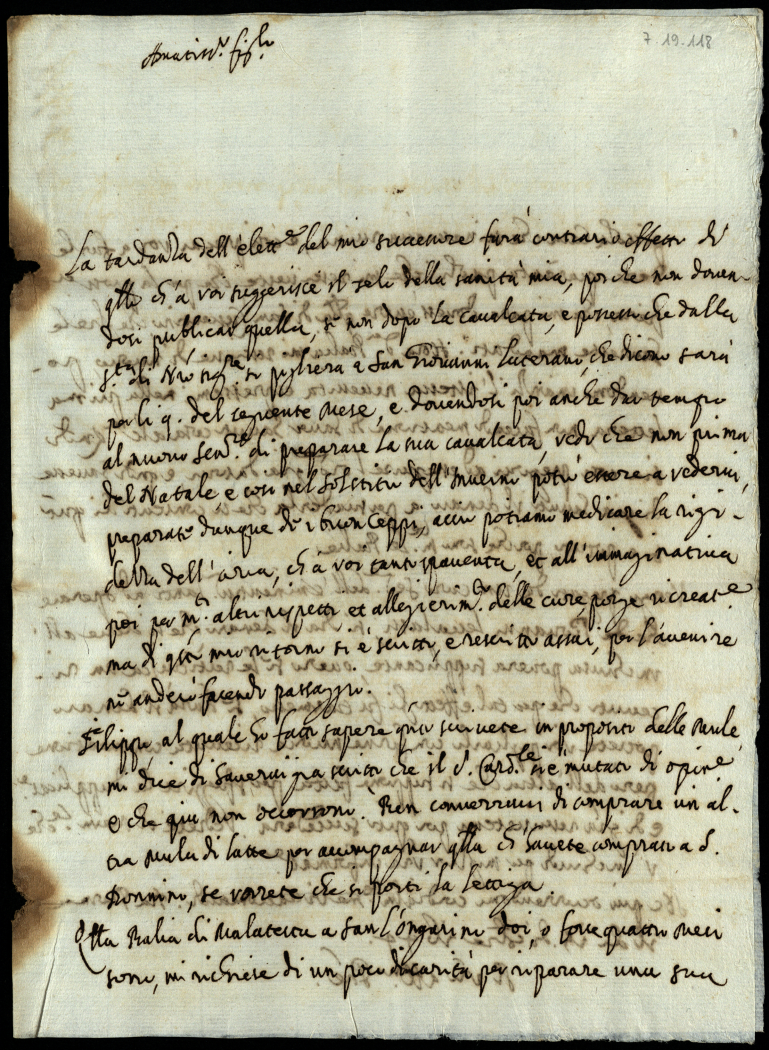 7-19-118
Amatis.o fig.lo
La tardanza dell'elett.e del mio successore farà contrario effetto di
q̃llo ch'à voi suggerisce il zelo della sanità mia, poiche non doven-
dosi publicar quella, se non dopo la cavalcata, e possesso che dalla
S.tà di N̄ro Sig.re si piglierà a San Giovanni Laterano, che dicono sarà
per li 9. del seguente mese, e dovendosi poi anche dar tempo
al nuovo Sen.re di preparare la sua cavalcata, vedo che non prima
del Natale e così nel solstitio dell'Inverno potrò essere a vedervi,
preparate dunque de i buon Ceppi, acciò potiamo medicare la rigi-
dezza dell'aria, ch'à voi tanto spaventa, et all'immaginativa
poi per m.ti altri rispetti et allegierim.to delle cure, porge ricreat.e
ma di q̃sto mio ritorno si è scritto, e rescritto assai, per l'avenire
ne anderò facendo passaggio.
Filippo al quale ho fatto sapere q̃nto scrivete in proposito delle Mule,
mi dice di havervi già scritto che il S. Card.le si è mutato di opin.e
e che più non occorrono. Ben converravvi di comprare un al-
tra Mula di latte per accompagnar q̃lla ch'havete comprato a S.
Donnino, se vorrete che si porti la lettiga.
Q̃lla Balia di Malatesta a San L'ongarino doi, o forse quattro Mesi
sono, mi richiese di un poco di carità per riparare una sua